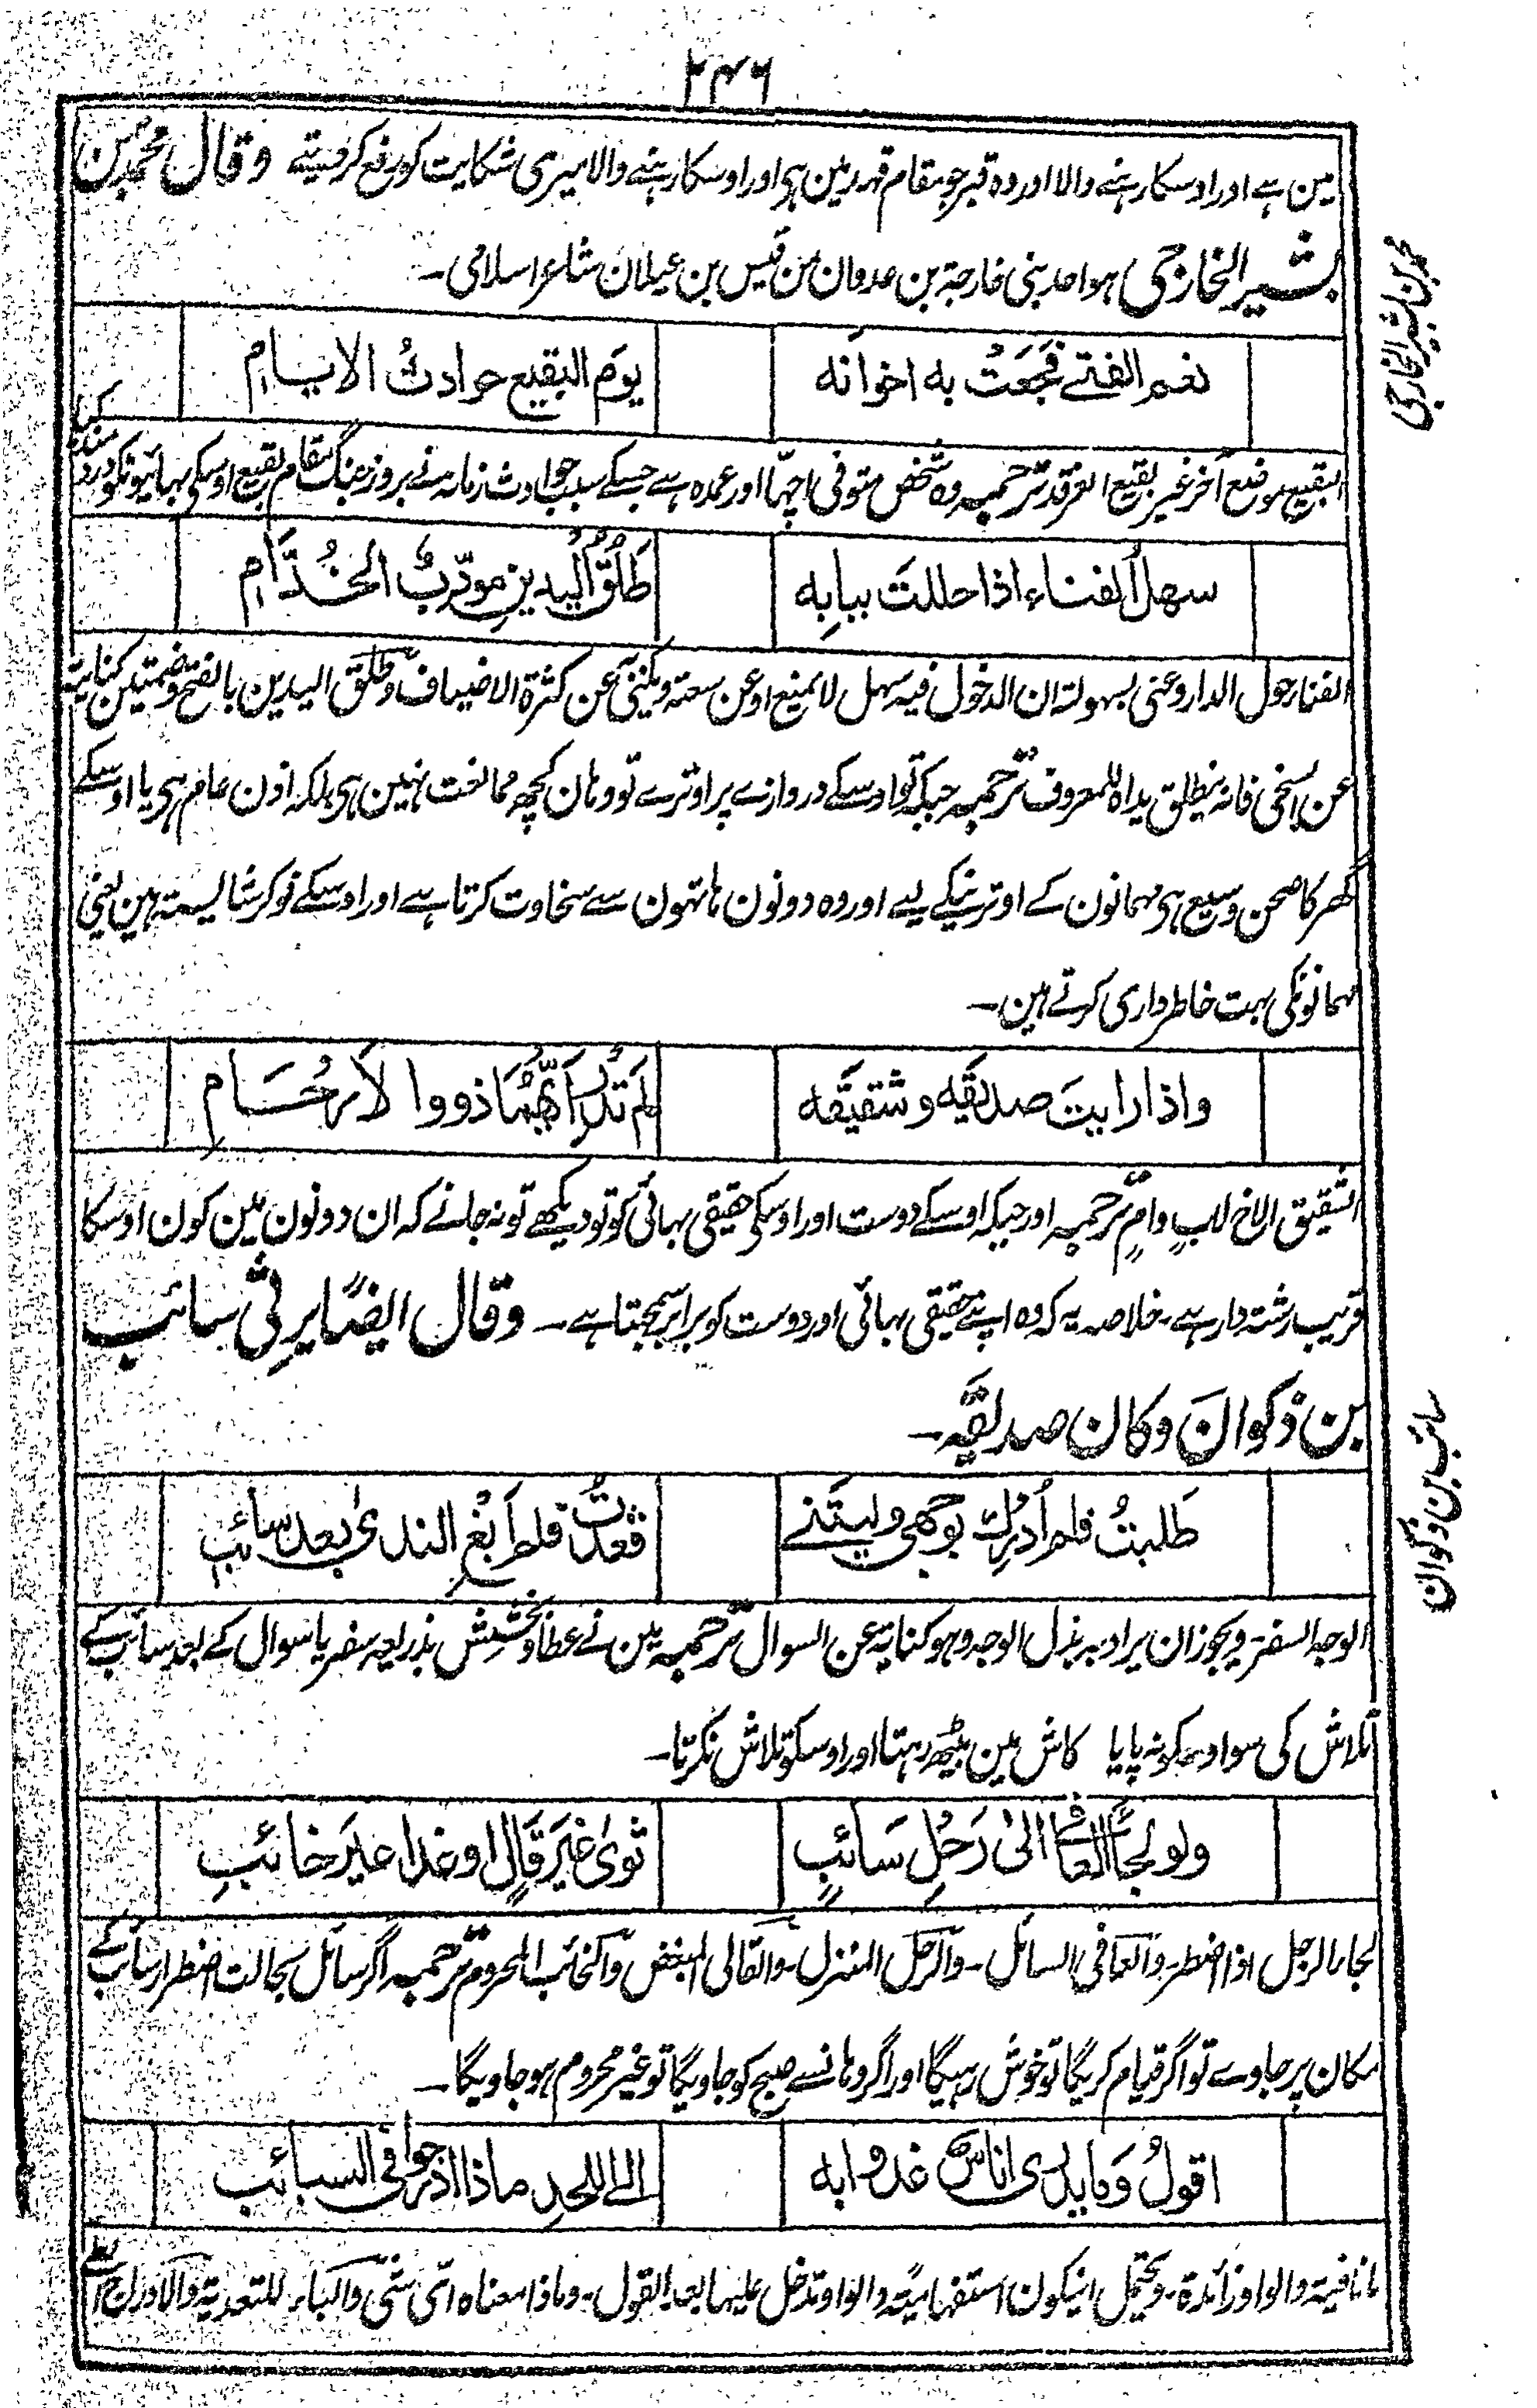 ۲۴۶
مین ہے اور اوسکا رہنے والا اور وہ قبر جو مقام قہد مین ہی اور اوسکا رہنے والا میری شکایت کو رفع کر دیتے وقال محمد بن
بشیر الخارجی ہو احد بنی خارجۃ بن عدوان بن قیس بن عیلان شاعر اسلامی۔
محمد بن بشیر الخارجی
نعم الفتے فَجَعَتْ به اخوانه
یومَ البقیع حوادثُ الایامِ
البقیع موضع آخر غیر بقیع الغرقد ترجمہ وہ شخص متوفی اچھا اور عمدہ ہے جسکے سبب حوادث زمانہ نے بروز جنگ مقام بقیع اوسکی بہائیونکو دردمند کیا
سهلُ الفناء اذا حللتَ ببابِه
طَلْقُ الیدینِ مؤدّبُ الخُدَّامِ
الفناء حول الدار وعنی بسہولتہ ان الدخول فیہ سہل لا یمنع او عن سعتہ ویکنیٰ عن کثرۃ الاضیاف وطلق الیدین بالفتح وضمتین کنایۃ
عن السخی فانہ ینطلق یداہ للمعروف ترجمہ جبکہ تو اوسکے دروازے پر اوترے تو وہان کچھ ممانعت نہین ہی بلکہ اذن عام ہی یا اوسکے
گھر کا صحن وسیع ہی مہمانون کے اوترنیکے لیے اور وہ دونون ہاتہون سے سخاوت کرتا ہے اور اوسکے نوکر شایستہ ہین یعنی
مہمانونکی بہت خاطرداری کرتے ہین۔
واذا رایتَ صدیقَه وشقیقَه
لم تَدْرِ اَیُّهُمَا ذووا الاَرحَامِ
الشقیق الاخ لابٍ وامٍ ترجمہ اور جبکہ اوسکے دوست اور اوسکی حقیقی بہائی کو تو دیکھے تو نہ جانے کہ ان دونون مین کون اوسکا
قریب رشتہ دار ہے۔ خلاصہ یہ کہ وہ اپنے حقیقی بہائی اور دوست کو برابر سمجہتا ہے۔ وقال ایضًا یرثی سائب
بن ذکوانَ وکان صدیقَه۔
سائب بن ذکوان
طَلبتُ فلم اُدرِكْ بوجهی ولیتَنے
قعدتُ فلم اَبْغِ الندیٰ بعد سائبِ
الوجہ السفر۔ ویجوز ان یراد بہ بذل الوجہ وہو کنایۃ عن السوال ترجمہ مین نے عطا وبخشش بذریعہ سفر یا سوال کے بعد سائب کے
تلاش کی سو اوسکو نہ پایا کاش مین بیٹھ رہتا اور اوسکو تلاش نکرتا۔
ولو لجأ العافی الیٰ رَحلِ سَائبٍ
ثویٰ غیرَ قَالٍ او غدا غیرَ خائبِ
لجاء الرجل اذا اضطر۔ والعافی السائل۔ والرحل المنزل۔ والقالی المبغض والخائب المحروم ترجمہ اگر سائل بحالت اضطرار سائب کے
مکان پر جاوے تو اگر قیام کریگا تو خوش رہیگا اور اگر وہانسے صبح کو جاویگا تو غیر محروم ہو جاویگا۔
اقولُ وَما یدری اناسٌ غدوا به
الے اللحدِ ماذا ادرجوا فی السبائب
ما نافیۃ والواو زائدۃ۔ ویحتمل انیکون استفہامیۃ والواو تدخل علیہا بعد القول۔ وماذا معناہ ای شئ والباء للتعدیۃ والادراج